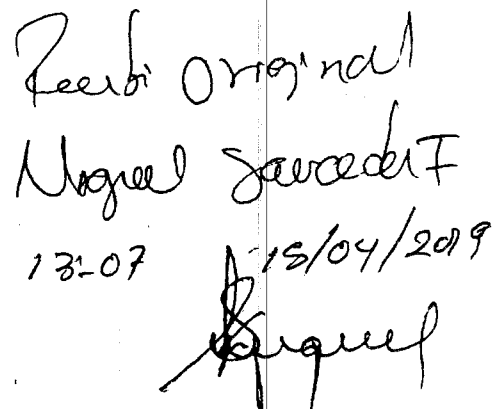 Recibi Original
Miguel Saucedo I
13:07 15/04/2019
Miguel